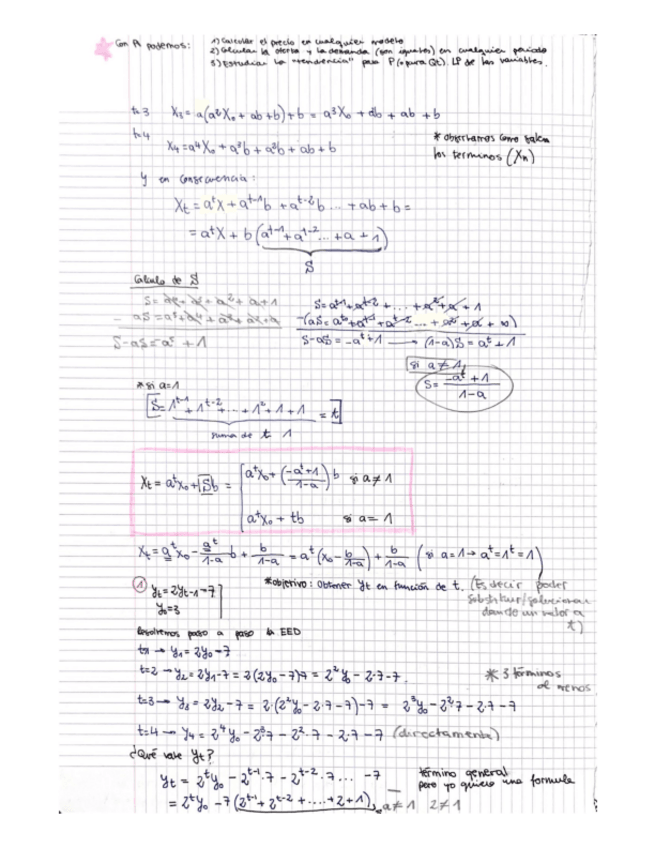 Con Pt podemos: 1) Calcular el precio en cualquier modelo
2) Calcular la oferta y la demanda (son iguales) en cualquier periodo
3) Estudiar la "tendencia" para P (o para Qt). LP de las variables.
t=3 X₃ = a(a²X₀ + ab + b) + b = a³X₀ + a²b + ab + b
t=4
X₄ = a⁴X₀ + a³b + a²b + ab + b
* observamos como salen los terminos (Xn)
y en consecuencia:
Xt = aᵗX + aᵗ⁻¹b + aᵗ⁻²b ... + ab + b =
= aᵗX + b(aᵗ⁻¹ + aᵗ⁻² ... + a + 1)
S
Cálculo de S
S = aᵗ⁻¹ + aᵗ⁻² + ... + a² + a + 1
S - aS = aᵗ + 1
S - aS = -aᵗ + 1 → (1-a)S = aᵗ + 1
si a ≠ 1
S = -aᵗ + 1 / 1-a
* si a=1
[S = 1ᵗ⁻¹ + 1ᵗ⁻² + ... + 1² + 1 + 1 = t]
suma de t 1
Xt = aᵗX₀ + Sb = aᵗX₀ + (-aᵗ+1 / 1-a) b si a ≠ 1
aᵗX₀ + tb si a = 1
Xt = aᵗX₀ - aᵗ/1-a b + b/1-a = aᵗ (X₀ - b/1-a) + b/1-a (si a=1 → aᵗ = 1ᵗ = 1)
① yt = 2yt-1 - 7
y₀ = 3
* objetivo: Obtener yt en función de t. (Es decir poder
substituir/solucionar
dando un valor a
t)
Resolvemos paso a paso la EED
t=1 → y₁ = 2y₀ - 7
t=2 → y₂ = 2y₁ - 7 = 2(2y₀ - 7)7 = 2²y₀ - 2·7 - 7
* 3 términos
al menos
t=3 → y₃ = 2y₂ - 7 = 2·(2²y₀ - 2·7 - 7) - 7 = 2³y₀ - 2²7 - 2·7 - 7
t=4 → y₄ = 2⁴y₀ - 2³7 - 2²·7 - 2·7 - 7 (directamente)
¿Qué vale yt?
yt = 2ᵗy₀ - 2ᵗ⁻¹·7 - 2ᵗ⁻²·7 ... - 7
término general
pero yo quiero una formula
= 2ᵗy₀ - 7(2ᵗ⁻¹ + 2ᵗ⁻² + .... + 2 + 1), a ≠ 1 2 ≠ 1